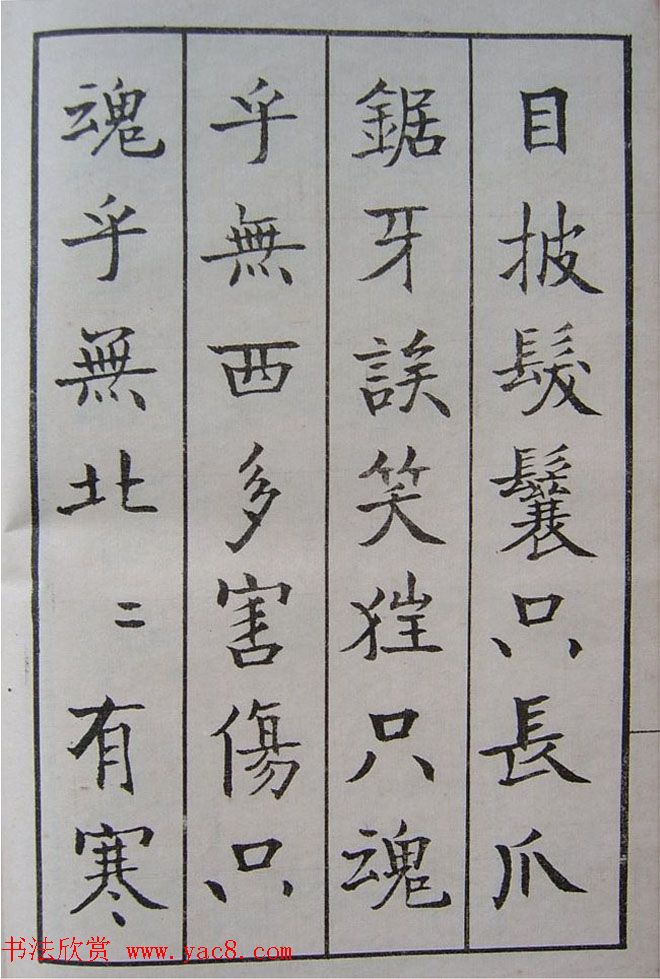 目披髮鬤只長爪
鋸牙誒笑狂只魂
乎無西多害傷只
魂乎無北〻有寒
书法欣赏 www.yac8.com